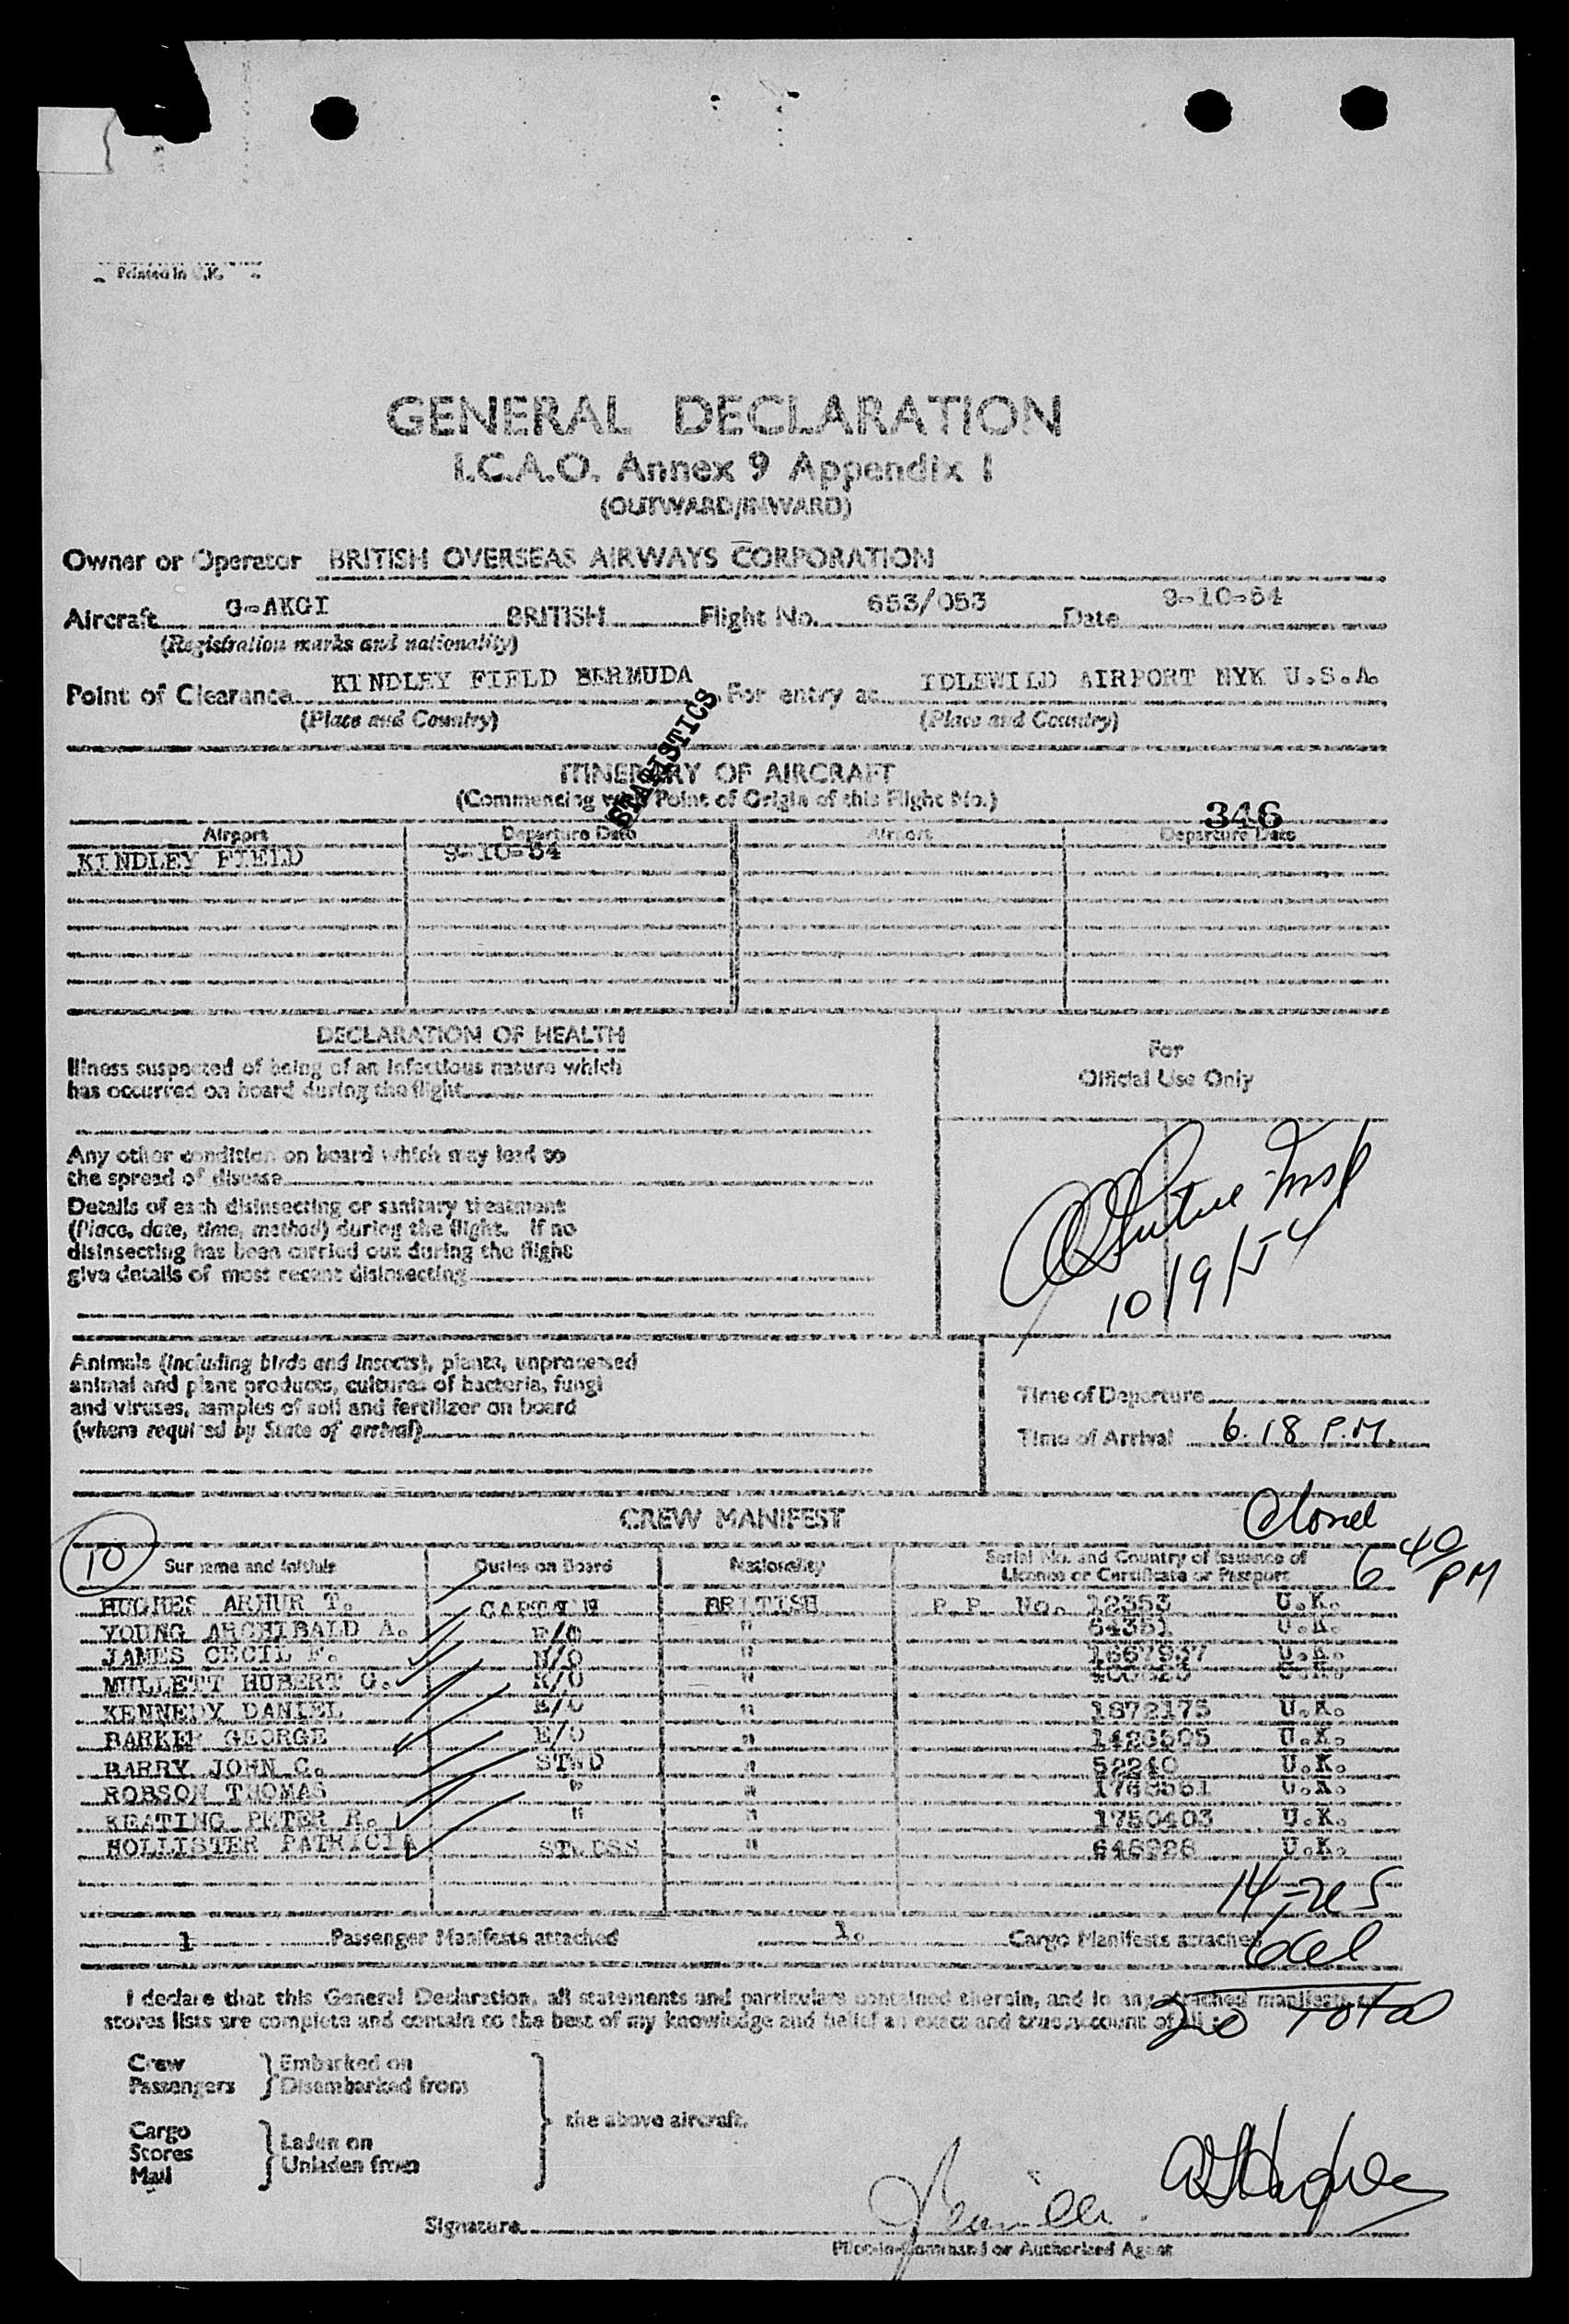 Printed in U.K.
GENERAL DECLARATION
I.C.A.O. Annex 9 Appendix I
(OUTWARD/INWARD)
Owner or Operator BRITISH OVERSEAS AIRWAYS CORPORATION
Aircraft G-AKGI BRITISH Flight No. 653/053 Date 9-10-54
(Registration marks and nationality)
Point of Clearance KINDLEY FIELD BERMUDA For entry at IDLEWILD AIRPORT NYK U.S.A.
(Place and Country) (Place and Country)
STATISTICS
ITINERARY OF AIRCRAFT
(Commencing with Point of Origin of this Flight No.)
346
Airport Departure Date Airport Departure Date
KINDLEY FIELD 9-10-54
DECLARATION OF HEALTH
For
Official Use Only
Illness suspected of being of an infectious nature which
has occurred on board during the flight
Any other condition on board which may lead to
the spread of disease
Details of each disinsecting or sanitary treatment
(Place, date, time, method) during the flight. If no
disinsecting has been carried out during the flight
give details of most recent disinsecting
Insp
10/9/54
Animals (including birds and insects), plants, unprocessed
animal and plant products, cultures of bacteria, fungi
and viruses, samples of soil and fertilizer on board
(where required by State of arrival)
Time of Departure
Time of Arrival 6.18 P.M.
CREW MANIFEST
Closed
6 40 PM
10
Surname and Initials Duties on Board Nationality Serial No. and Country of Issuance of
Licence or Certificate or Passport
HUGHES ARHUR T. CAPTAIN BRITISH P.P. No. 12353 U.K.
YOUNG ARCHIBALD A. F/O " 64351 U.K.
JAMES CECIL F. N/O " 1667937 U.K.
MULLETT HUBERT G. R/O " U.K.
KENNEDY DANIEL E/O " 1872175 U.K.
BARKER GEORGE E/O " 1426505 U.K.
BARRY JOHN C. STWD " 52240 U.K.
ROBSON THOMAS " " 1768551 U.K.
KEATING PETER R. " " 1750403 U.K.
HOLLISTER PATRICIA STWDSS " 648928 U.K.
14
1 Passenger Manifests attached 1. Cargo Manifests attached
I declare that this General Declaration, all statements and particulars contained therein, and in any attached manifests or
stores lists are complete and contain to the best of my knowledge and belief an exact and true account of all :
20 Total
Crew Embarked on
Passengers Disembarked from
the above aircraft.
Cargo
Stores Laden on
Mail Unladen from
ATHughes
Signature
Pilot-in-Command or Authorised Agent